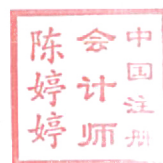 中国注册
会计师
陈婷婷